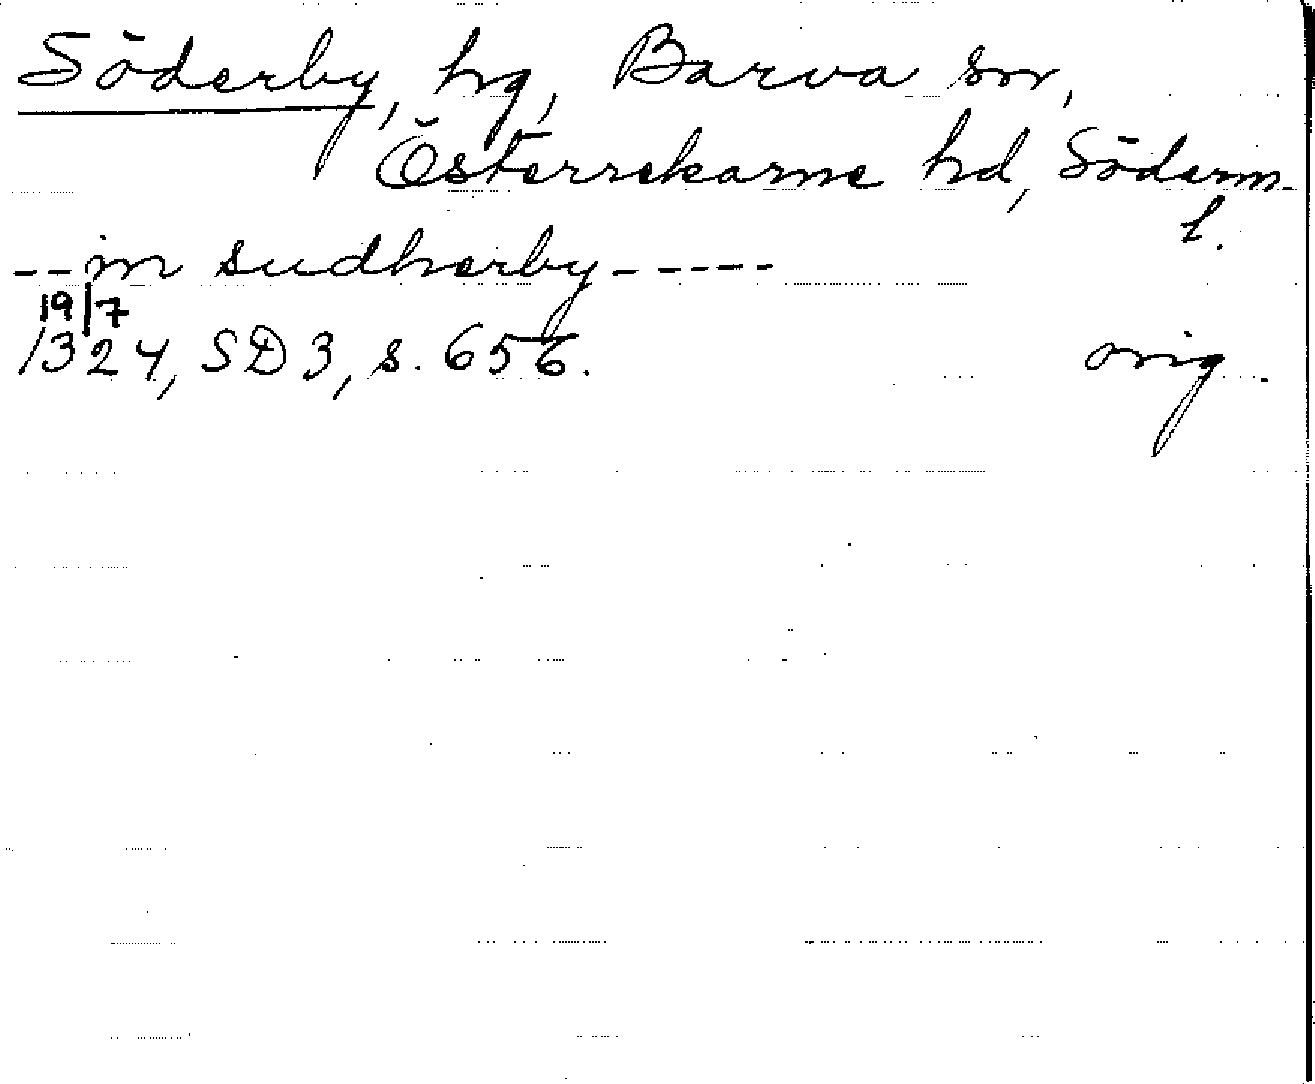 Söderby, hg, Barva sn,
Österrekarne hd, Söderm.
l.
-- in sudherby -----
19/7
1324, SD 3, s. 656. orig.